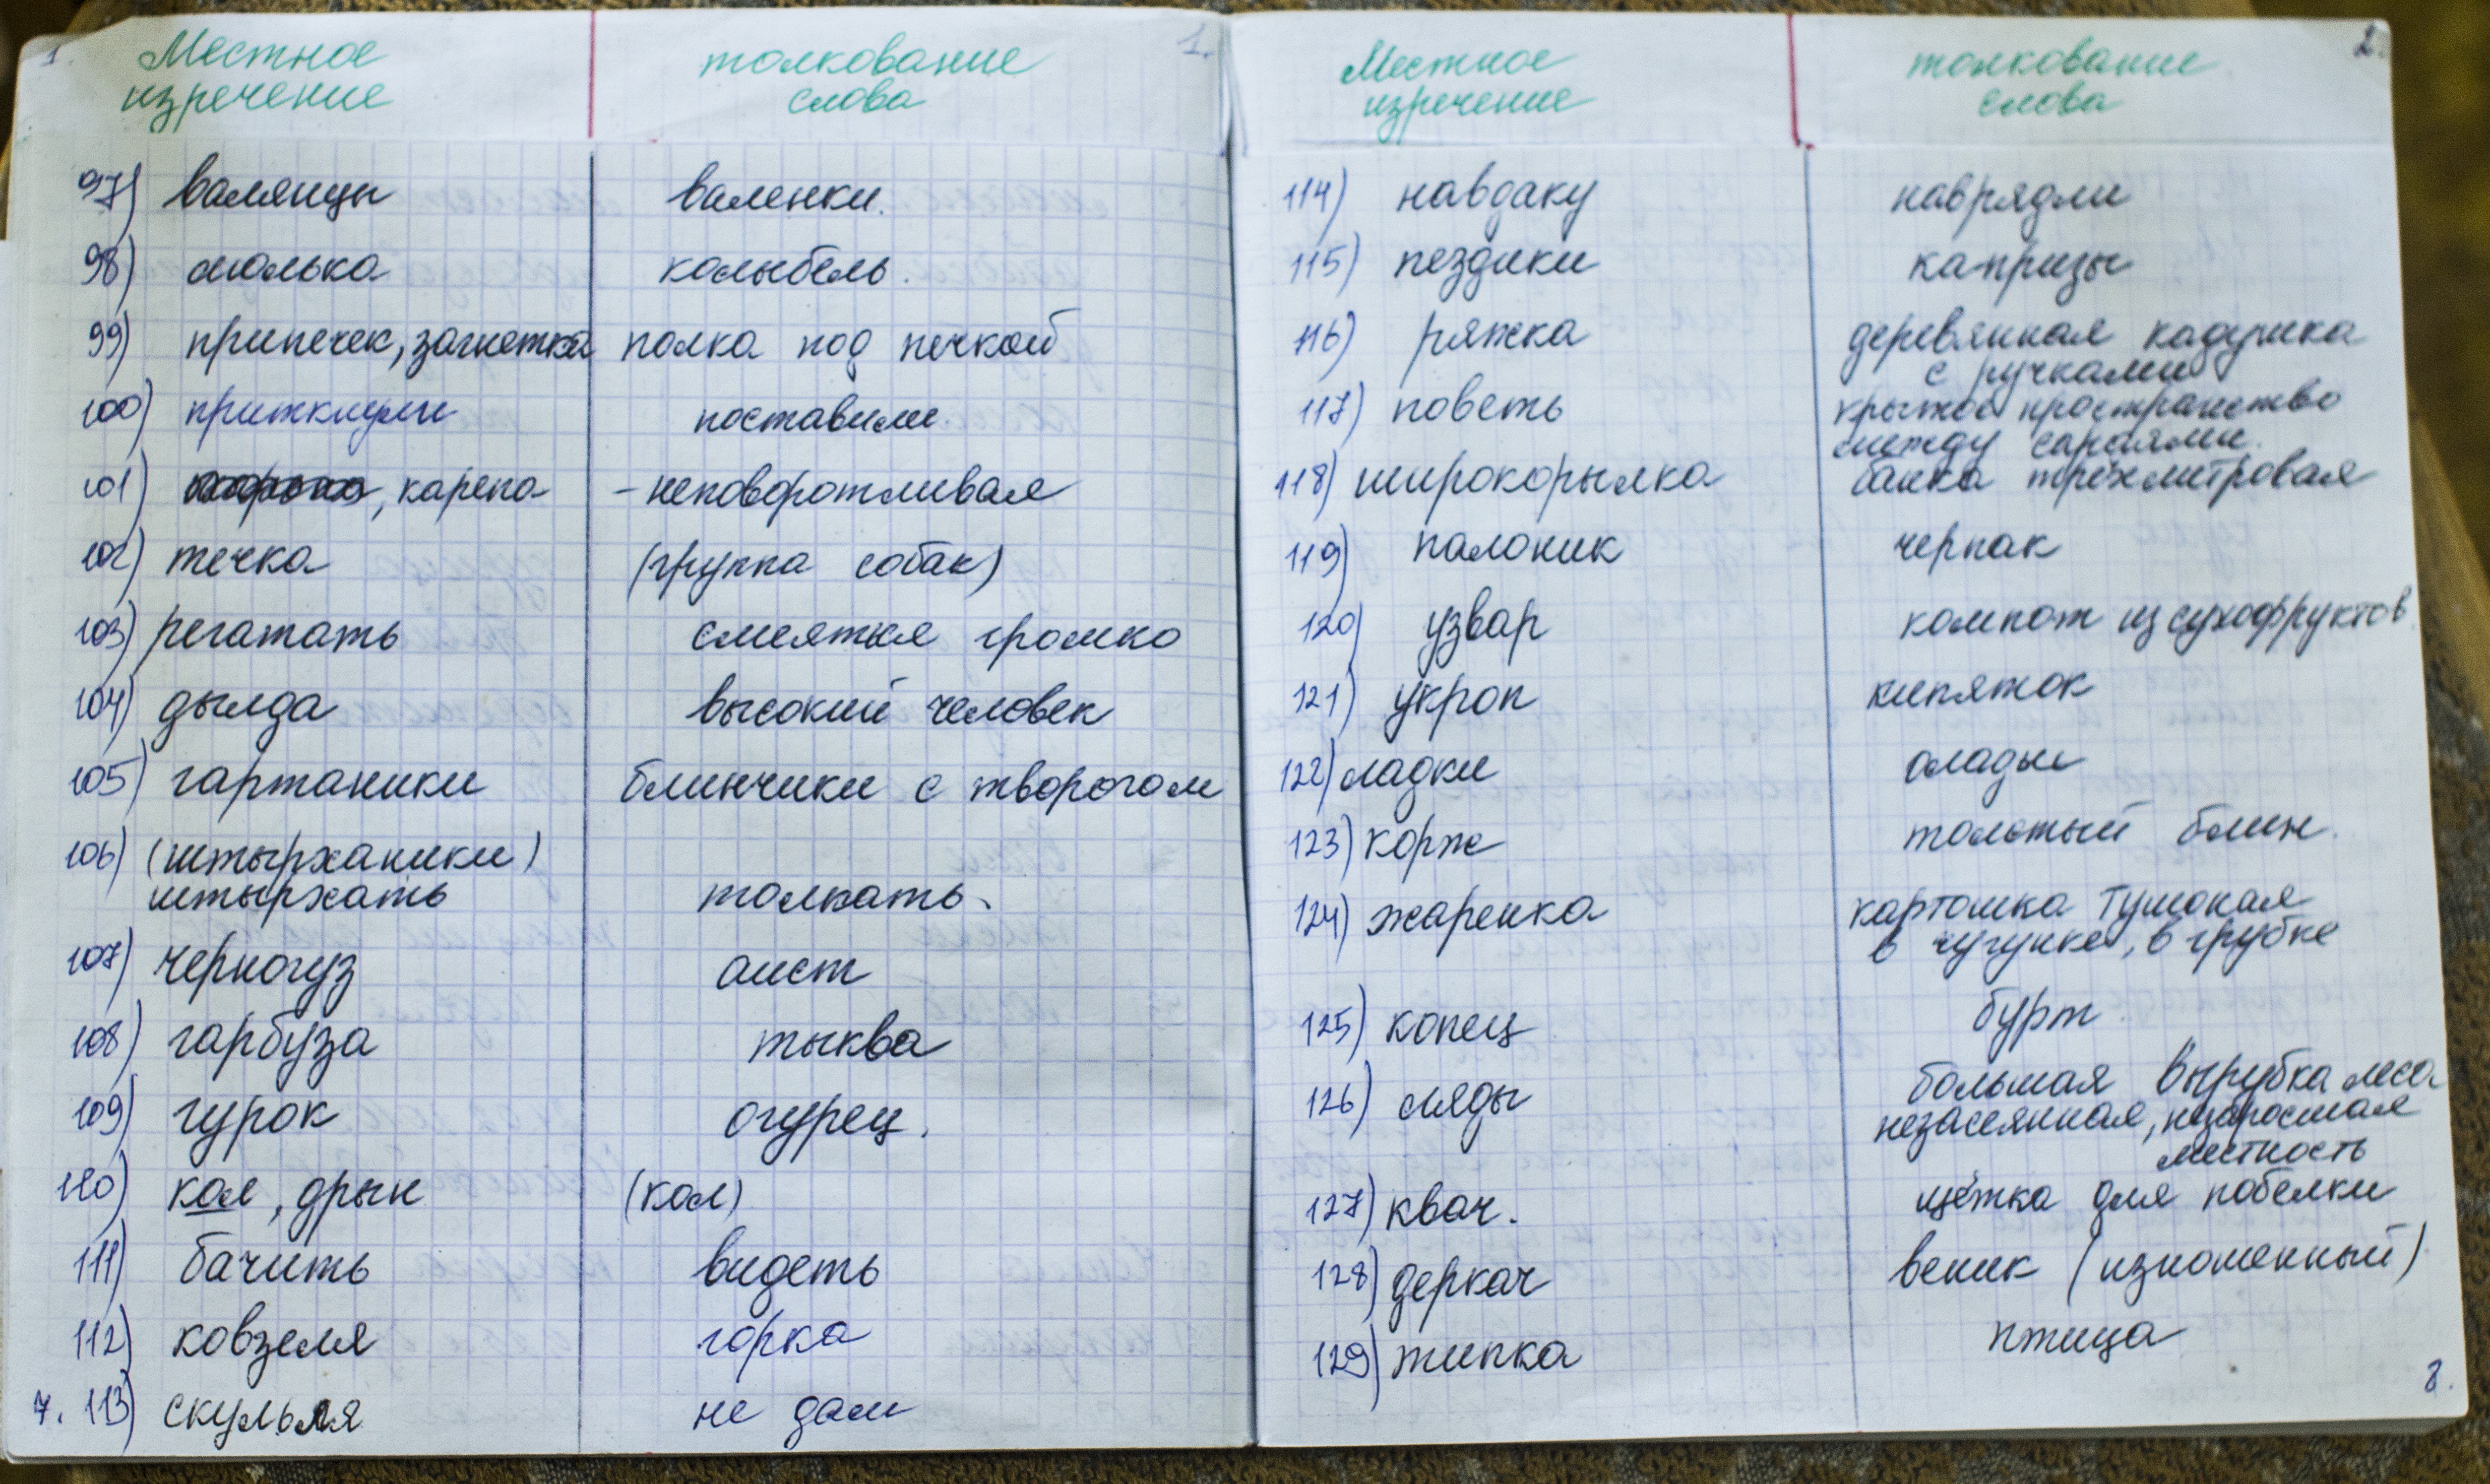 1. Местное 1.
изречение
толкование
слова
97) валянцы валенки.
98) люлька колыбель.
99) припечек, загнетка полка под печкой
100) приткнули поставили
101) , карепа - неповоротливая
102) течка (группа собак)
103) регатать смеяться громко
104) дылда высокий человек
105) гартаники блинчики с творогом
106) (штырханики)
штырхать толкать
107) черногуз аист
108) гарбуза тыква
109) гурок огурец.
110) кол, дрын (кол)
111) бачить видеть
112) ковзеля горка
7. 113) скульля не дам
2.
Местное
изречение
толкование
слова
114) навдаку наврядли
115) пездики капризы
116) ряжка деревянная кадушка
с ручками
117) поветь крытое пространство
между сараями.
118) широкорылка банка трёхлитровая
119) палоник черпак
120) узвар компот из сухофруктов
121) укроп кипяток
122) ладки олады
123) корж толстый блин.
124) жаренка картошка тушоная
в чугунке, в грубке
125) копец бурт
126) ляды большая вырубка леса
незасеянная, незаросшая
местность
127) квач. щётка для побелки
128) деркач веник (изношенный)
129) типка птица
8.